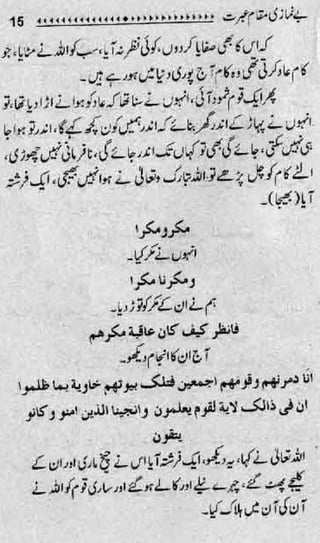 بے نمازی مقام عبرت 15
کہ اس کا بھی صفایا کردوں، کوئی نظر نہ آیا، سب کو اللہ نے مٹایا، جو
کام عاد کرتی تھی وہ کام آج پوری دنیا میں ہور ہے ہیں۔
پھر ایک قوم ثمود آئی، انہوں نے سنا تھا کہ عاد کو ہوا نے اڑا دیا تھا، تو
انہوں نے پہاڑ کے اندر گھر بنائے کہ اندر ہمیں کون کچھ کہے گا، اندر تو ہوا جا
ہی نہیں سکتی، جائے گی بھی تو کہاں تک اندر جائے گی، نافرمانی نہیں چھوڑی،
الٹے کام کو چل پڑھے تو اللہ تبارک وتعالیٰ نے ہوا نہیں بھیجی، ایک فرشتہ
آیا (بھیجا)۔
مکرومکرا
انہوں نے مکر کیا۔
ومکرنا مکرا
ہم نے ان کے مکر کو توڑ دیا۔
فانظر کیف کان عاقبة مکرهم
آج ان کا انجام دیکھو۔
انا دمرنهم وقومهم اجمعین فتلک بیوتهم خاویة بما ظلموا
ان فی ذالک لایة لقوم یعلمون وانجینا الذین امنو و کانو
یتقون
اللہ تعالیٰ نے کہا، یہ دیکھو، ایک فرشتہ آیا اس نے چیخ ماری اور ان کے
کلیجے پھٹ گئے، چہرے نیلے اور کالے ہو گئے اور ساری قوم کو اللہ نے
آن کی آن میں ہلاک کیا۔